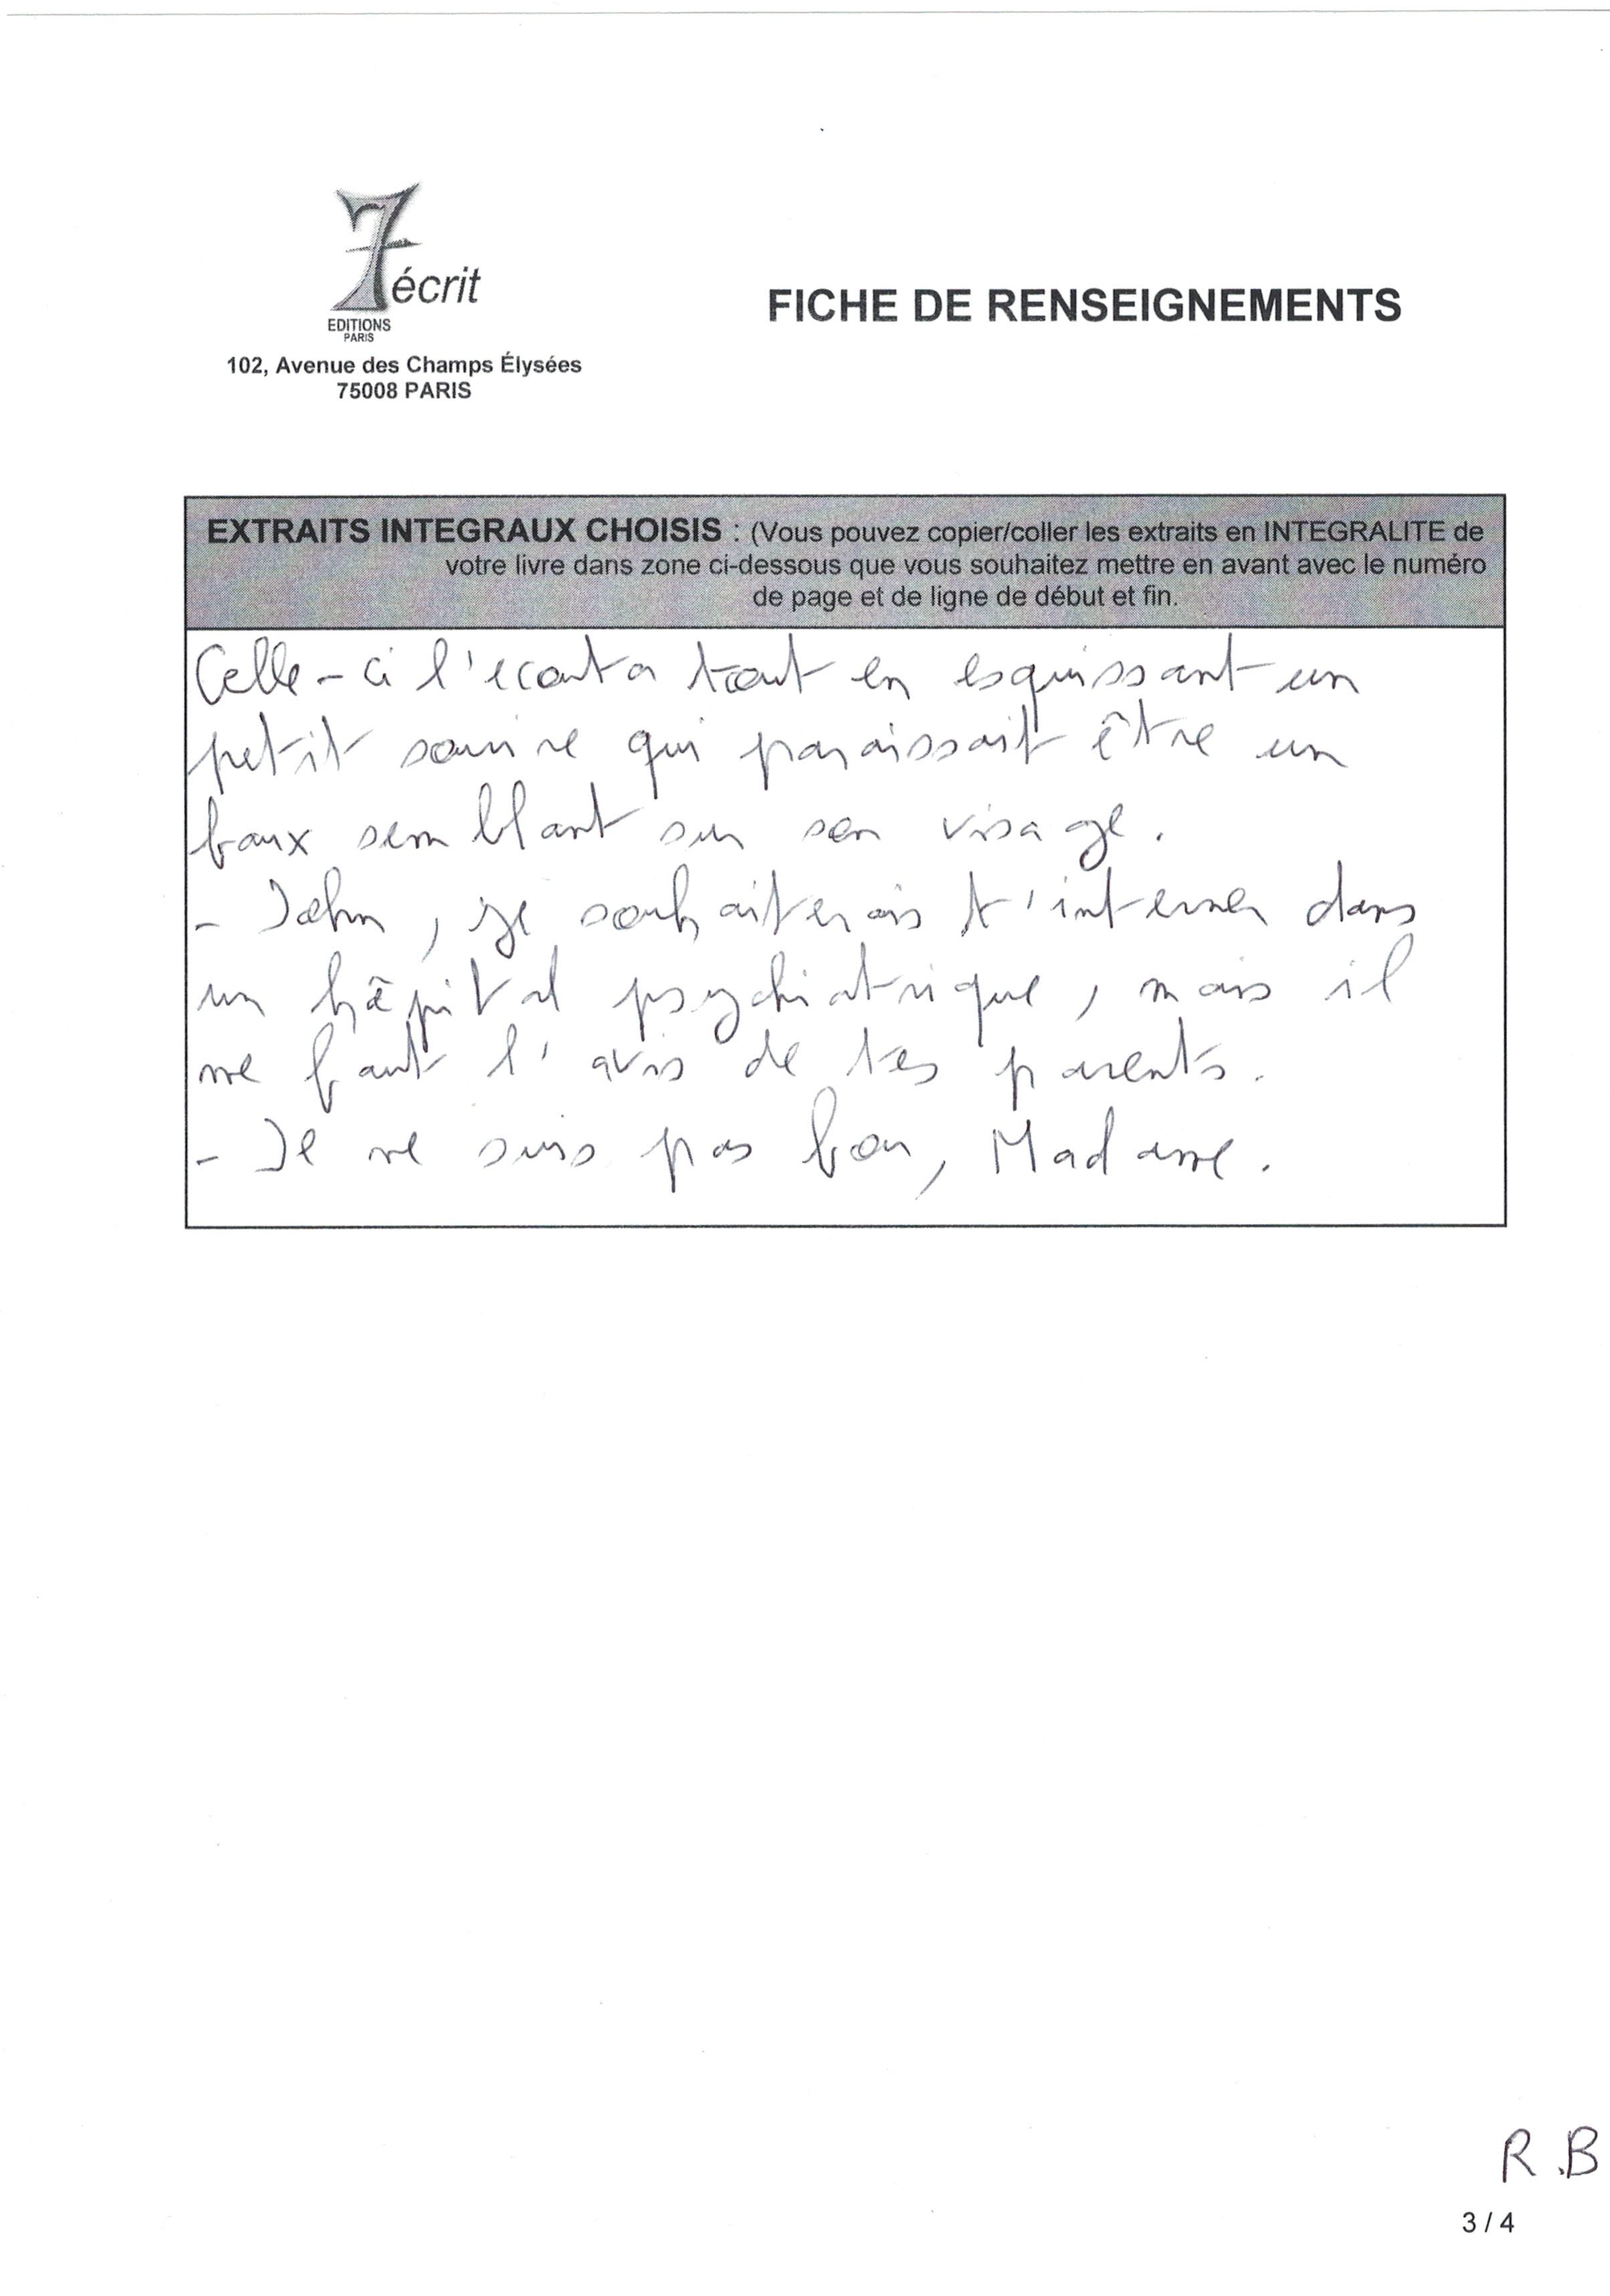 7écrit
EDITIONS
PARIS
102, Avenue des Champs Élysées
75008 PARIS
FICHE DE RENSEIGNEMENTS
EXTRAITS INTEGRAUX CHOISIS : (Vous pouvez copier/coller les extraits en INTEGRALITE de
votre livre dans zone ci-dessous que vous souhaitez mettre en avant avec le numéro
de page et de ligne de début et fin.
Celle-ci l'ecouta tout en esquissant un
petit sourire qui paraissait être un
faux semblant sur son visage.
- John, je souhaiterais t'interner dans
un hôpital psychiatrique, mais il
me faut l'avis de tes parents.
- Je ne suis pas fou, Madame.
R.B
3 / 4